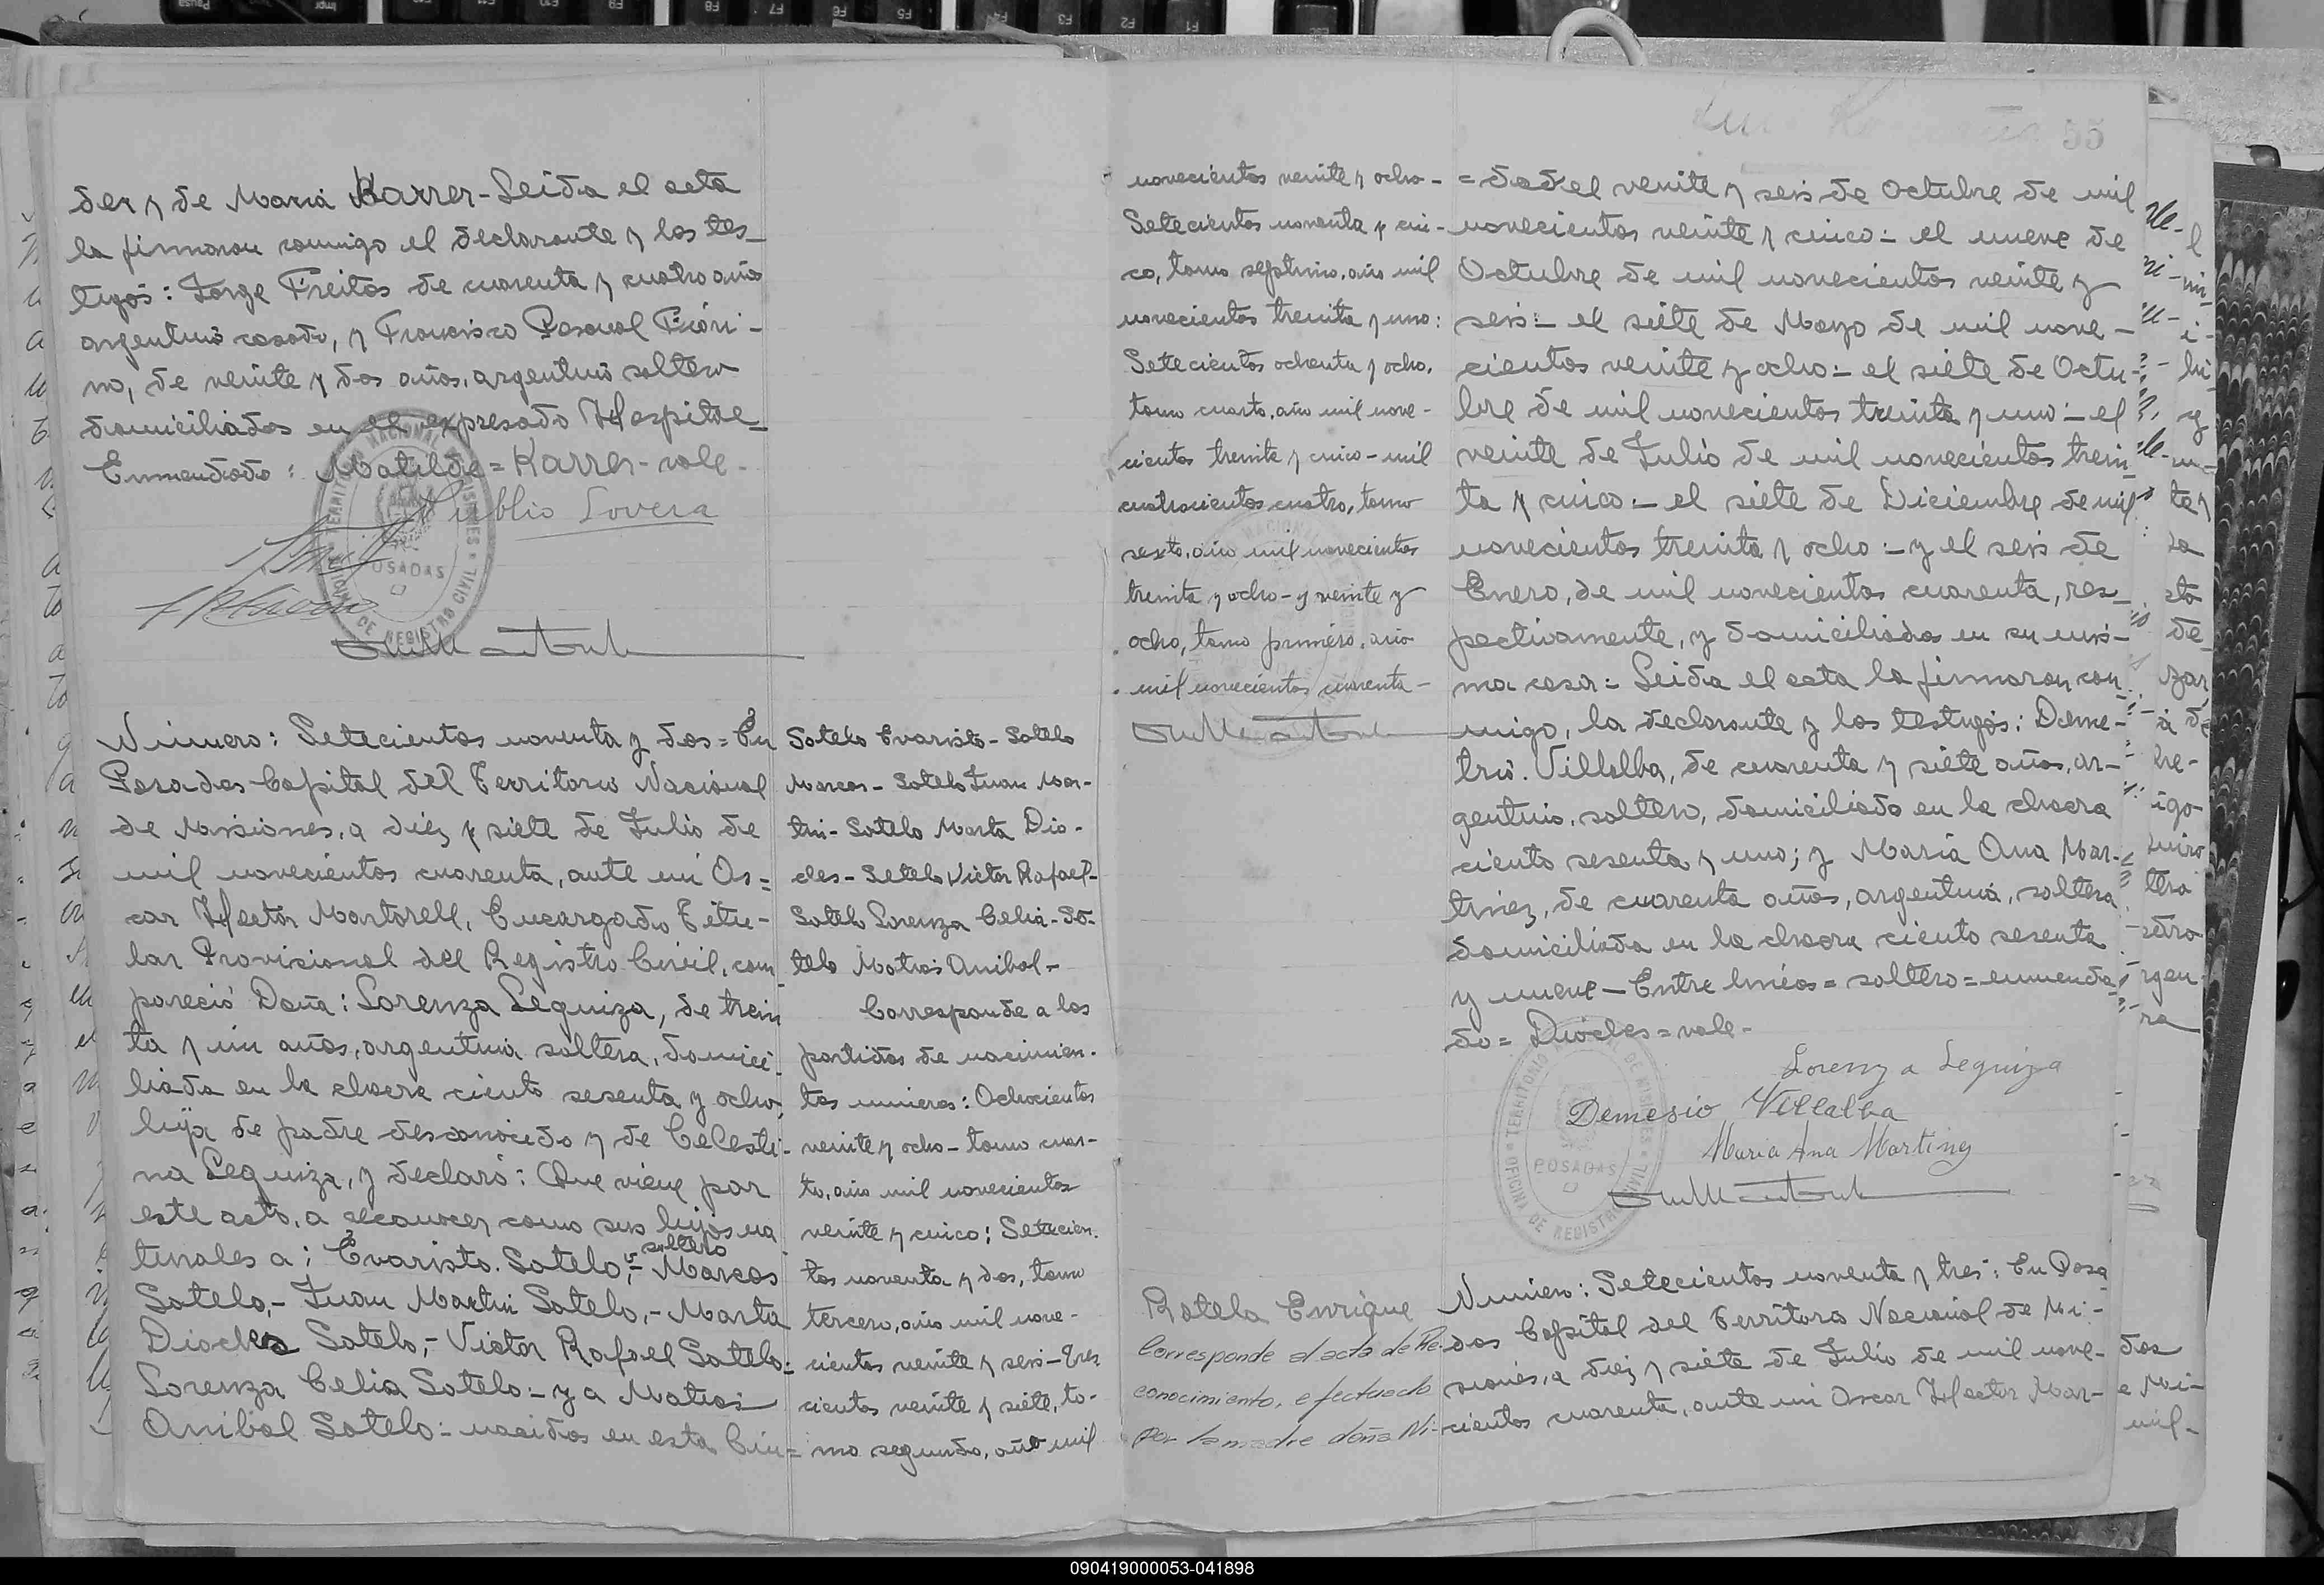 der y de Maria Karrer - Leida el acta
la firmaron conmigo el declarante y los tes_
tigos: Jorge Freitas de cuarenta y cuatro años
argentino casado, y Francisco Pascual Fiori-
no, de veinte y dos años, argentino soltero
domiciliados en el expresado Hospital_
Enmendado: Matilde = Karrer - vale -
Publio Lovera
TERRITORIO NACIONAL DE MISIONES
POSADAS
OFICINA DE REGISTRO CIVIL
Número: Setecientos noventa y dos = En
Posadas Capital del Territorio Nacional
de Misiones, a diez y siete de Julio de
mil novecientos cuarenta, ante mi Os=
car Hector Martorell, Encargado Titu-
lar Provisional del Registro Civil, com
pareció Doña: Lorenza Leguiza, de trein
ta y un años, argentina soltera, domici-
liada en la chacra ciento sesenta y ocho,
hija de padre desconocido y de Celesti-
na Leguiza, y declaró: Que viene por
este acto, a reconocer como sus hijos na
soltero
turales a: Evaristo Sotelo,- Marcos
Sotelo,- Juan Martin Sotelo,- Marta
Diocles Sotelo,- Victor Rafael Sotelo:
Lorenza Celia Sotelo:- y a Matias
Anibal Sotelo:- nacidos en esta Ciu=
Sotelo Evaristo - Sotelo
Marcos - Sotelo Juan Mar-
tin - Sotelo Marta Dio-
cles - Sotelo Victor Rafael -
Sotelo Lorenza Celia - So-
telo Matias Anibal -
Corresponde a las
partidas de nacimien-
tos números: Ochocientos
veinte y ocho - tomo cuar-
to, año mil novecientos
veinte y cinco; Setecien-
tos noventa y dos, tomo
tercero, año mil nove-
cientos veinte y seis - Tres
cientos veinte y siete, to-
mo segundo, año mil
novecientos veinte y ocho -
Setecientos noventa y cin-
co, tomo septimo, año mil
novecientos treinta y uno:
Setecientos ochenta y ocho,
tomo cuarto, año mil nove-
cientos treinta y cinco - mil
cuatrocientos cuatro, tomo
sexto, año mil novecientos
treinta y ocho - y veinte y
ocho, tomo primero, año
mil novecientos cuarenta -
55
= dad el veinte y seis de Octubre de mil
novecientos veinte y cinco:- el nueve de
Octubre de mil novecientos veinte y
seis:- el siete de Mayo de mil nove-
cientos veinte y ocho:- el siete de Octu-
bre de mil novecientos treinta y uno:- el
veinte de Julio de mil novecientos trein
ta y cinco:- el siete de Diciembre de mil
novecientos treinta y ocho:- y el seis de
Enero, de mil novecientos cuarenta, res_
pectivamente, y domiciliados en su mis-
ma casa:- Leida el acta la firmaron con
migo, la declarante y los testigos: Deme-
trio. Villalba, de cuarenta y siete años, ar-
gentino, soltero, domiciliado en la chacra
ciento sesenta y uno; y Maria Ana Mar-
tinez, de cuarenta años, argentina, soltera
domiciliada en la chacra ciento sesenta
y nueve - Entre lineas = soltero = enmenda
do = Diocles = vale -
Lorenza Leguiza
Demesio Villalba
Maria Ana Martinez
TERRITORIO NACIONAL DE MISIONES
POSADAS
OFICINA DE REGISTRO CIVIL
Rotela Enrique
Corresponde al acta de Re-
conocimiento, efectuado
por la madre doña Ni-
Número: Setecientos noventa y tres: En Posa
das Capital del Territorio Nacional de Mi-
siones, a diez y siete de Julio de mil nove-
cientos cuarenta, ante mi Oscar Hector Mar-
090419000053-041898